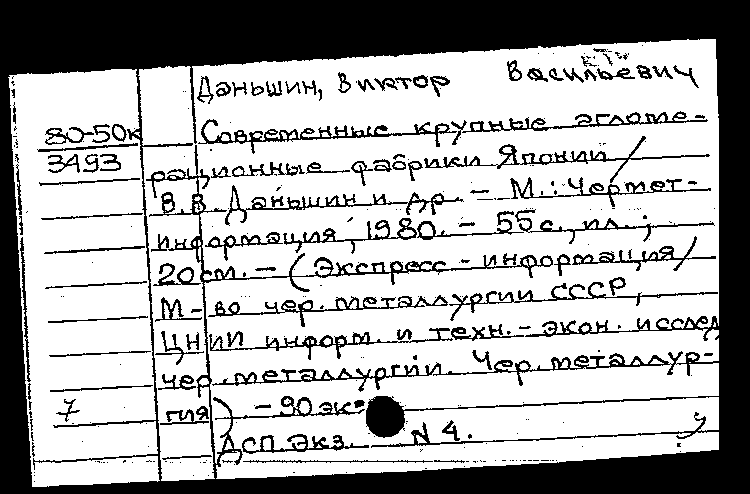 Даньшин, Виктор Васильевич
80-50к Современные крупные агломе-
3493 рационные фабрики Японии /
В.В. Даньшин и др. - М.: Чермет-
информация, 1980. - 55 с., ил.;
20 см. - (Экспресс-информация /
М-во чер. металлургии СССР,
ЦНИИ информ. и техн.-экон. исслед.
чер. металлургии. Чер. металлур-
7 гия). - 90 эк
ДСП. Экз. N 4.